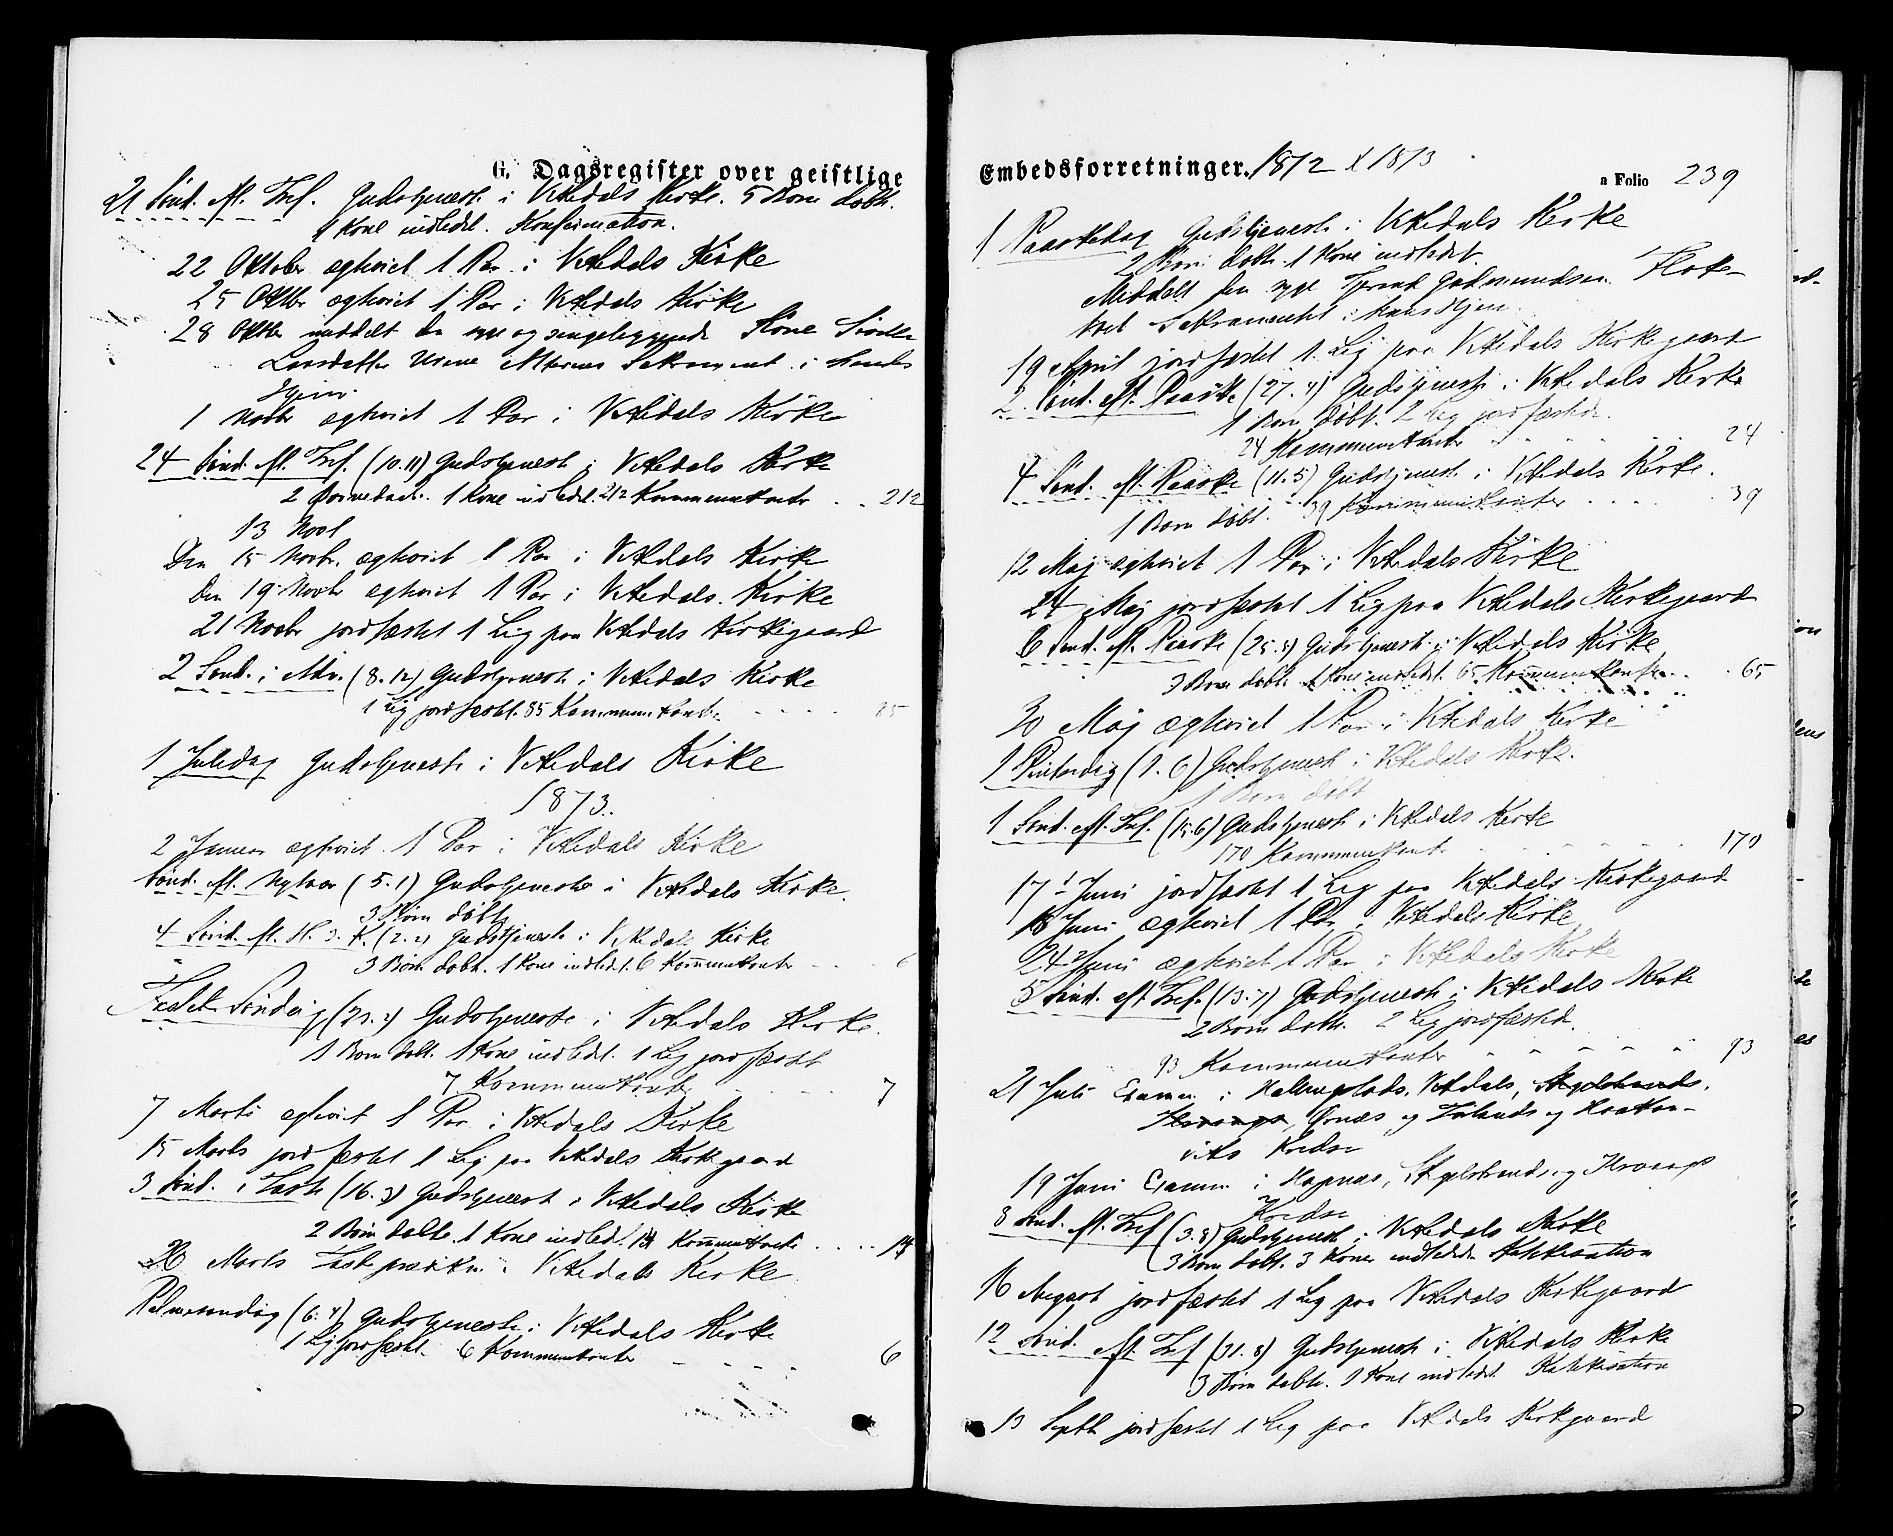 G. Dagsregister over geistlige
21 Sönd. ef. Tref. Gudstjeneste i Vikedals Kirke. 5 Børn døbte.
1 Kone indledet. Konfirmation.
22 Oktober ægteviet 1 Par i Vikedals Kirke
25 Oktbr ægteviet 1 Par i Vikedals Kirke
28 Oktbr meddelt den syge og sengeliggende Kone
Larsdatter Alterens Sakrament i hendes
Hjem.
1 Novbr ægteviet 1 Par i Vikedals Kirke
24 Sönd. ef. Tref. (10.11) Gudstjeneste i Vikedals Kirke
2 Børnedaab. 1 Kone indledet. 212 Kommunikanter . . 212
13 Novb
Den 15 Novbr. ægteviet 1 Par i Vikedals Kirke
den 19 Novbr ægteviet 1 Par i Vikedals Kirke
21 Novbr jordfæstet 1 Lig paa Vikedals Kirkegaard
2 Sönd. i Adv. (8.12) Gudstjeneste i Vikedals Kirke
1 Lig jordfæstet. 85 Kommunikanter - - - - - 85
1 Juledag Gudstjeneste i Vikedals Kirke
1873.
2 Januar ægteviet 1 Par i Vikedals Kirke
Sönd. ef. Nytaar (5.1) Gudstjeneste i Vikedals Kirke.
3 Børn døbte
4 Sönd. ef. H. 3. K. (2.2) Gudstjeneste i Vikedals Kirke
3 Børn døbt. 1 Kone indledet. 6 Kommunikanter - - - - 6
Fastel. Søndag (23.2) Gudstjeneste i Vikedals Kirke.
1 Barn døbt. 1 Kone indledet. 1 Lig jordfæstet
7 Kommunikanter - - - - 7
7 Marts ægteviet 1 Par i Vikedals Kirke
15 Marts jordfæstet 1 Lig paa Vikedals Kirkegaard
3 Sönd. i Faste (16.3) Gudstjeneste i Vikedals Kirke
2 Børn døbte. 1 Kone indledet. 14 Kommunikanter . . . . . 14
Marts Fasteprædiken i Vikedals Kirke
Palmesøndag (6.4) Gudstjeneste i Vikedals Kirke
1 Lig jordfæstet. 6 Kommunikanter - - - - 6
Embedsforretninger. 1872 & 1873
a Folio 239
1 Paaskedag Gudstjeneste i Vikedals Kirke
2 Børn døbte. 1 Kone indledet.
Meddelt den syge Gudmundsen
Sakramentet i hans Hjem.
19 April jordfæstet 1 Lig paa Vikedals Kirkegaard
2. Sönd. ef. Paaske (27.4) Gudstjeneste i Vikedals Kirke
1 Barn døbt. 2 Lig jordfæstede.
24 Kommunikanter - - - - - 24
4 Sönd. ef. Paaske (11.5) Gudstjeneste i Vikedals Kirke.
1 Barn døbt. 39 Kommunikanter . . . . . 39
12 Maj ægteviet 1 Par i Vikedals Kirke
24 Maj jordfæstet 1 Lig paa Vikedals Kirkegaard
6 Sönd. ef. Paaske (25.5) Gudstjeneste i Vikedals Kirke
3 Børn døbte. 1 Kone indledet. 65 Kommunikanter . . . 65
30 Maj ægteviet 1 Par i Vikedals Kirke
1 Pintsedag (1.6) Gudstjeneste i Vikedals Kirke.
1 Barn døbt
1 Sönd. ef. Tref. (15.6) Gudstjeneste i Vikedals Kirke
170 Kommunikanter - - - - - 170
17 Juni jordfæstet 1 Lig paa Vikedals Kirkegaard
18 Juni ægteviet 1 Par i Vikedals Kirke
24 Juni ægteviet 1 Par i Vikedals Kirke
5 Sönd. ef. Tref. (13.7) Gudstjeneste i Vikedals Kirke
2 Børn døbte. 2 Lig jordfæstede.
93 Kommunikanter " " " " " 93
21 Juli Examen i Vikedals,
Ørnæs og og
Kredse
19 Juni Examen i Hapnæs, og
Kredse
8 Sönd. ef. Tref (3.8) Gudstjeneste i Vikedals Kirke
3 Børn døbt. 3 Koner indledede Katekisation
16 August jordfæstet 1 Lig paa Vikedals Kirkegaard
12 Sönd. ef. Tref (31.8) Gudstjeneste i Vikedals Kirke
3 Børn døbte. 1 Kone indledet. Katekisation
13 Septb jordfæstet 1 Lig paa Vikedals Kirkegaard